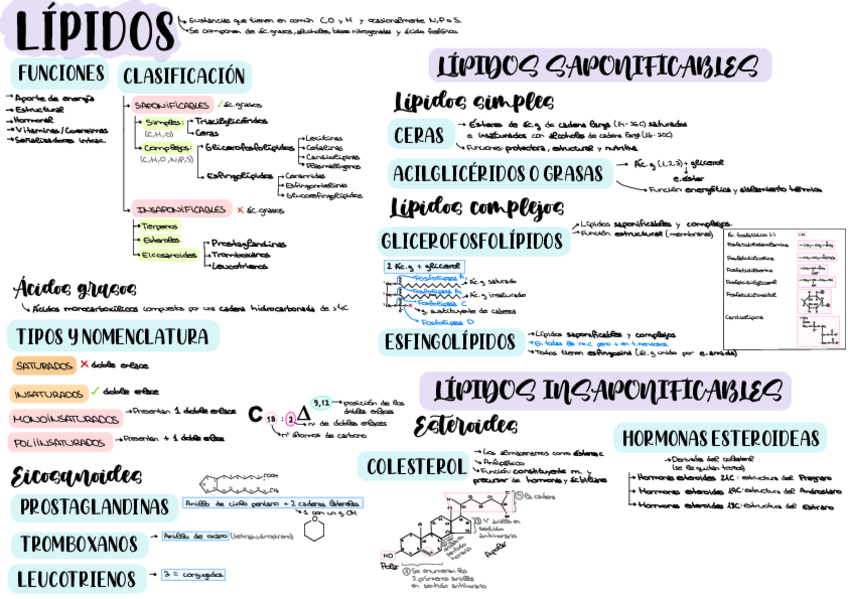 LÍPIDOS
Sustancias que tienen en común C,O y H y ocasionalmente N,P o S.
Se componen de ác. grasos, alcoholes, bases nitrogenadas y ácido fosfórico.
FUNCIONES
Aporte de energía
Estructural
Hormonal
Vitaminas/Coenzimas
Señalizadores intrac.
CLASIFICACIÓN
SAPONIFICABLES ✓ ác. grasos
Simples:
(C,H,O)
Triacilglicéridos
Ceras
Complejos:
(C,H,O,N,P,S)
Glicerofosfolípidos
Lecitinas
Cefalinas
Cardiolipinas
Plasmalógenos
Esfingolípidos
Ceramidas
Esfingomielina
Glucoesfingolípidos
INSAPONIFICABLES X ác. grasos
Terpenos
Esteroles
Eicosanoides
Prostaglandinas
Tromboxanos
Leucotrienos
Ácidos grasos
Ácidos monocarboxílicos compuestos por una cadena hidrocarbonada de >4C
TIPOS Y NOMENCLATURA
SATURADOS X doble enlace
INSATURADOS ✓ doble enlace
MONOINSATURADOS → Presentan 1 doble enlace
POLIINSATURADOS → Presentan + 1 doble enlace
C 18 : 2 Δ 9,12
posición de los
dobles enlaces
nº de dobles enlaces
nº átomos de carbono
Eicosanoides
PROSTAGLANDINAS
Anillo de ciclo pentano + 2 cadenas laterales
1 con un g. OH
TROMBOXANOS
Anillo de oxano (tetrahidropirano)
LEUCOTRIENOS
3 = conjugados
LÍPIDOS SAPONIFICABLES
Lípidos simples
CERAS
Ésteres de ác.g de cadena larga (14-36C) saturados
e insaturados con alcoholes de cadena larga (16-30C)
Funciones: protectora, estructural y nutritiva
ACILGLICÉRIDOS O GRASAS
Ác.g (1,2,3) + glicerol
e.éster
Función energética y aislamiento térmico
Lípidos complejos
GLICEROFOSFOLÍPIDOS
Lípidos saponificables y complejos.
Función estructural (membranas)
2 Ác.g + glicerol
Fosfolipasa A₁
Ác.g saturado
Fosfolipasa A₂
Ác.g insaturado
Fosfolipasa C
g. sustituyente de cabeza
Fosfolipasa D
Ác. fosfatídico (-)
Fosfatidiletanolamina
Fosfatidilcolina
Fosfatidilserina
Fosfatidilglicerol
Fosfatidilinositol
Cardiolipina
ESFINGOLÍPIDOS
Lípidos saponificables y complejos
En todas las m.c pero + en t. nervioso.
Todos tienen esfingosina (ác.g unido por e.amida)
LÍPIDOS INSAPONIFICABLES
Esteroides
COLESTEROL
Los almacenamos como ésteres c
Anfipático
Función constituyente m. y
precursor de hormonas y ác biliares
HO
Polar
Apolar
HORMONAS ESTEROIDEAS
Derivadas del colesterol
(se le quitan trozos)
Hormonas esteroides 21C: estructura del Pregnano
Hormonas esteroides 19C: estructura del Androstano
Hormonas esteroides 18C: estructura del Estrano